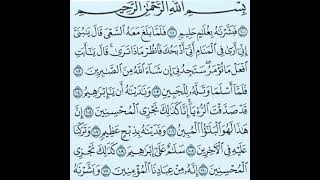 بِسْمِ اللَّهِ الرَّحْمَٰنِ الرَّحِيمِ
فَبَشَّرْنَٰهُ بِغُلَٰمٍ حَلِيمٍ ۝ فَلَمَّا بَلَغَ مَعَهُ السَّعْيَ قَالَ يَٰبُنَيَّ
إِنِّي أَرَىٰ فِي الْمَنَامِ أَنِّي أَذْبَحُكَ فَانظُرْ مَاذَا تَرَىٰ قَالَ يَٰأَبَتِ
افْعَلْ مَا تُؤْمَرُ سَتَجِدُنِي إِن شَاءَ اللَّهُ مِنَ الصَّٰبِرِينَ ۝
فَلَمَّا أَسْلَمَا وَتَلَّهُ لِلْجَبِينِ ۝ وَنَٰدَيْنَٰهُ أَن يَٰإِبْرَٰهِيمُ ۝
قَدْ صَدَّقْتَ الرُّءْيَا إِنَّا كَذَٰلِكَ نَجْزِي الْمُحْسِنِينَ ۝ إِنَّ
هَٰذَا لَهُوَ الْبَلَٰؤُا الْمُبِينُ ۝ وَفَدَيْنَٰهُ بِذِبْحٍ عَظِيمٍ ۝ وَتَرَكْنَا
عَلَيْهِ فِي الْءَاخِرِينَ ۝ سَلَٰمٌ عَلَىٰ إِبْرَٰهِيمَ ۝ كَذَٰلِكَ نَجْزِي
الْمُحْسِنِينَ ۝ إِنَّهُ مِنْ عِبَادِنَا الْمُؤْمِنِينَ ۝ وَبَشَّرْنَٰهُ